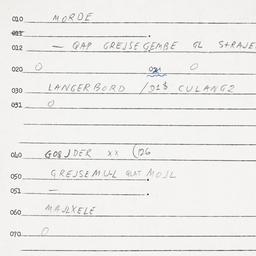 010 MORDE
011
012 — GAP GREJSEGEMBE GL STRAJE
020 O 021 O
030 LANGERBORD / 018 CULANG2
031 O
040 GOBJDER xx (126
050 GREJSEMUL GLAT MOJL
051 —
060 MAJLXELE
070 O